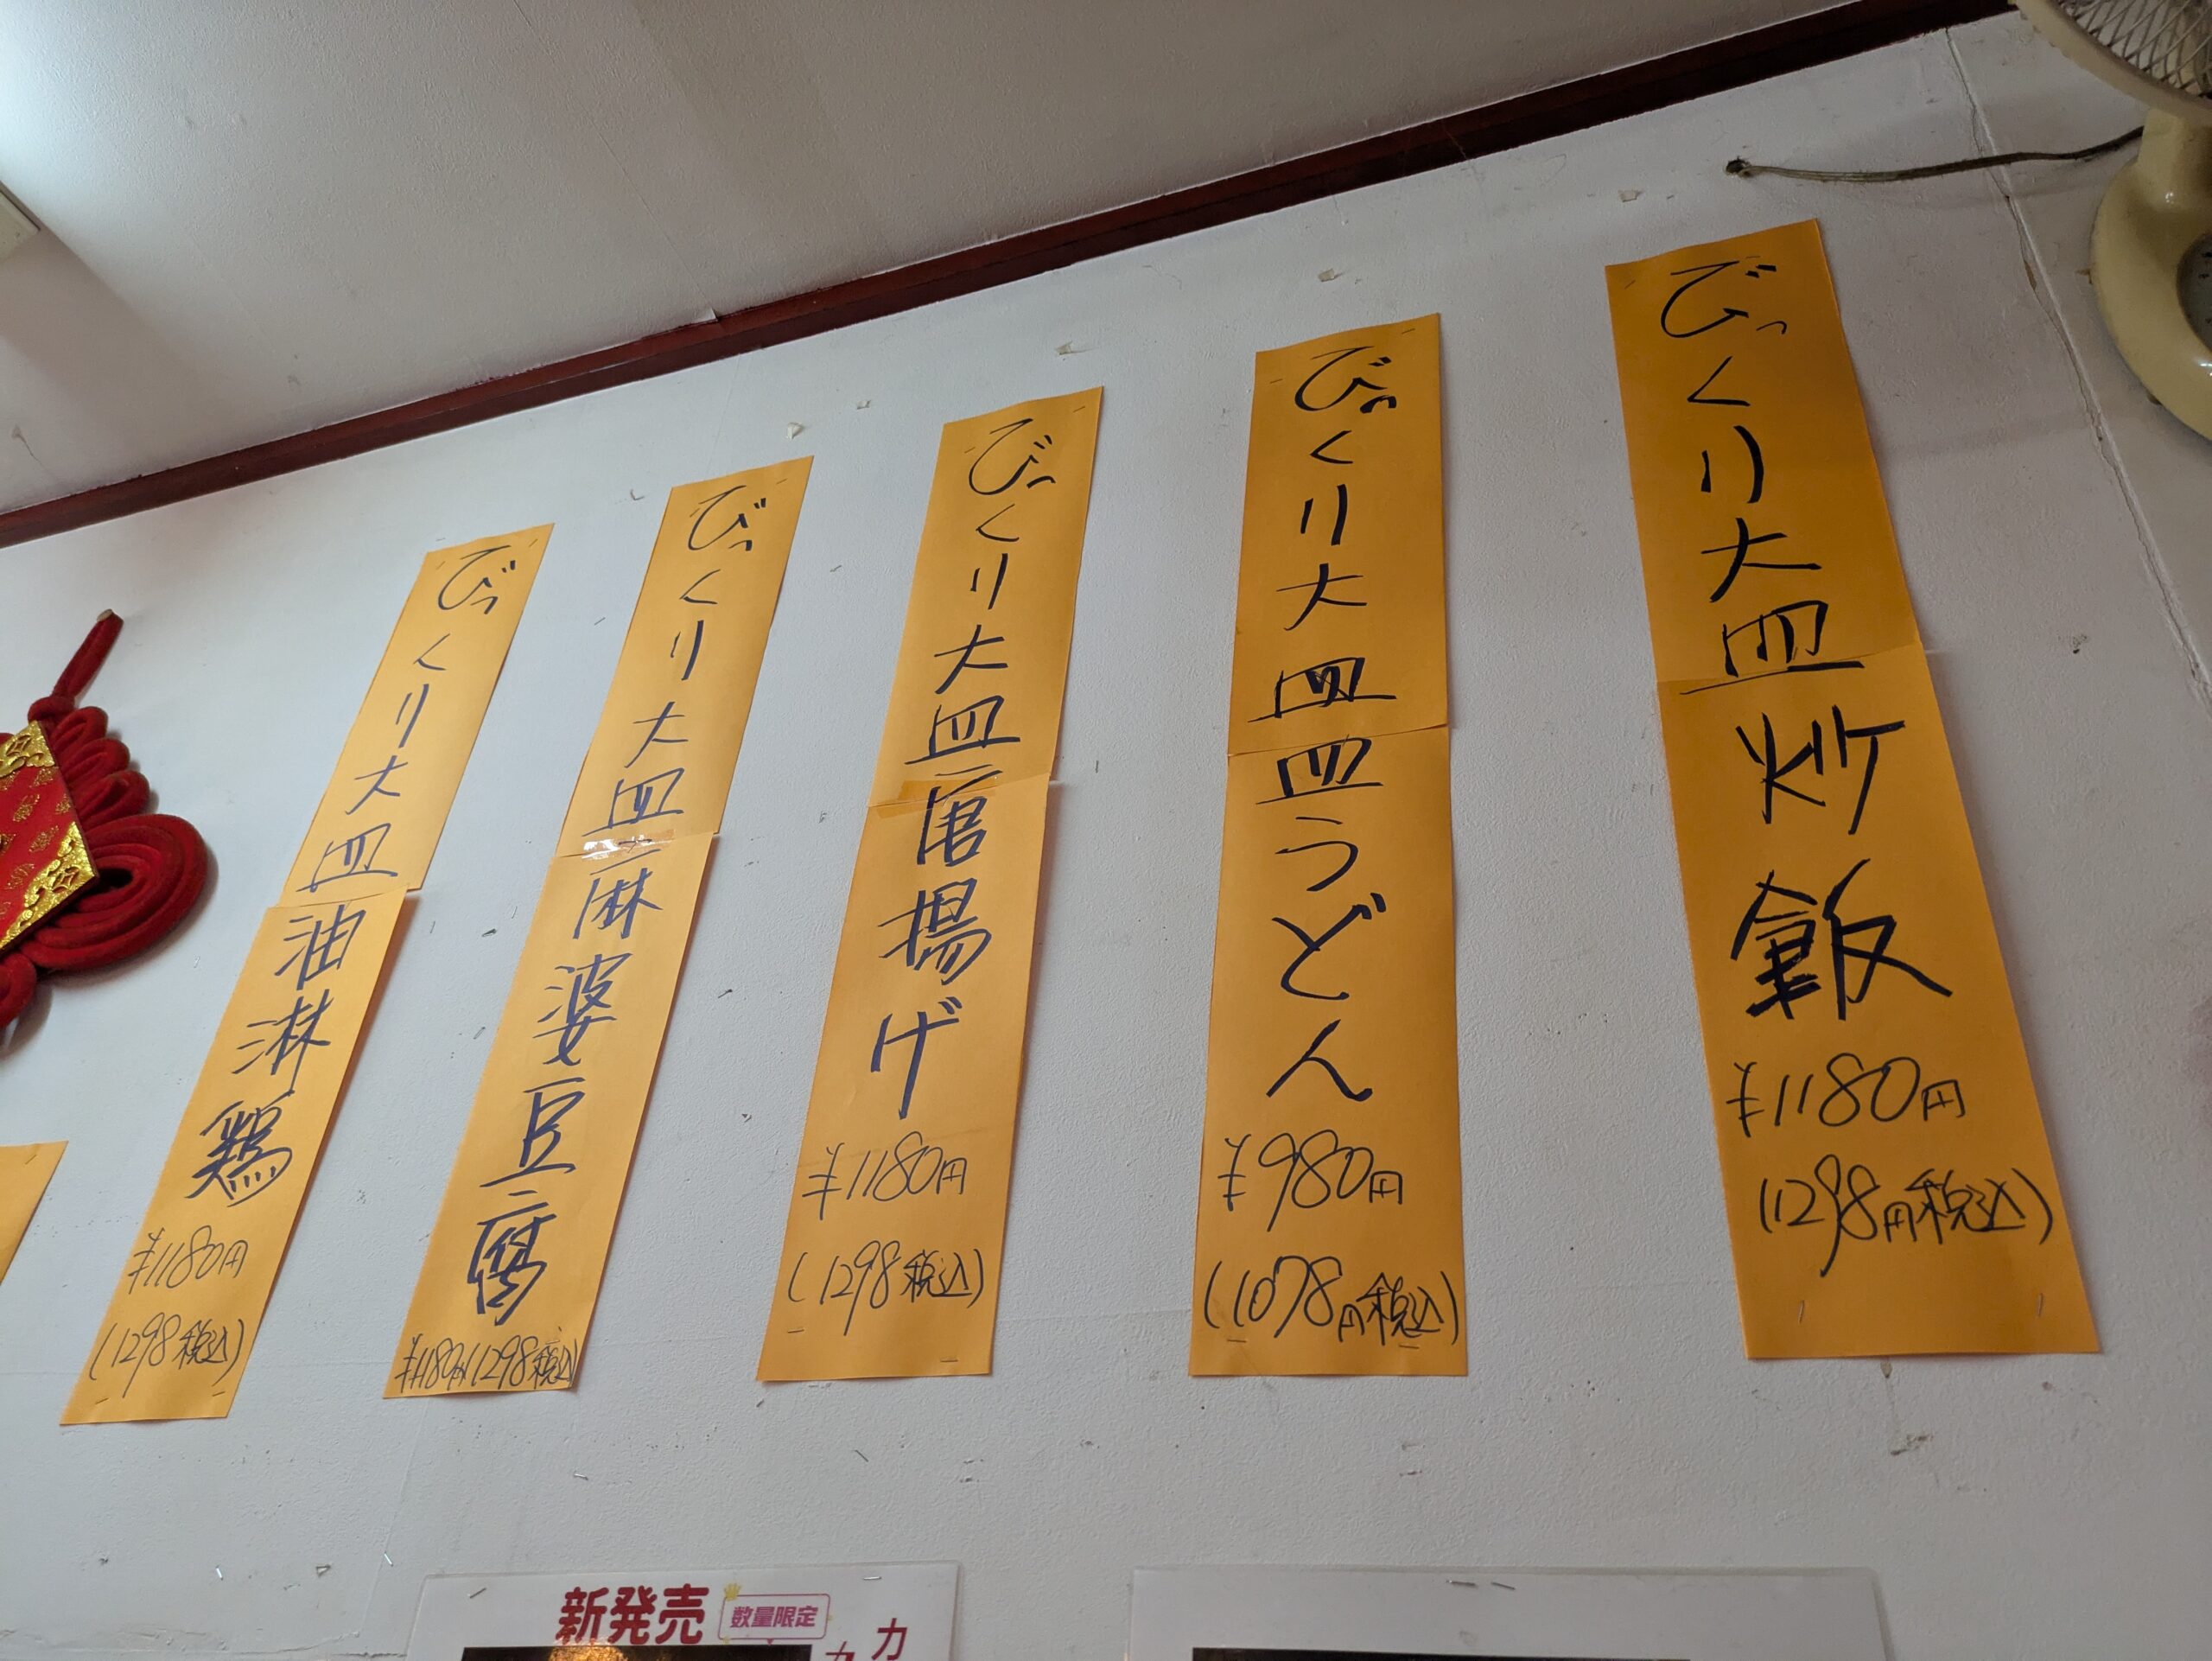 びっくり大皿炒飯
¥1180円
(1298円税込)
びっくり大皿皿うどん
¥980円
(1078円税込)
びっくり大皿唐揚げ
¥1180円
(1298税込)
びっくり大皿麻婆豆腐
¥1180円(1298税込)
びっくり大皿油淋鶏
¥1180円
(1298税込)
新発売
数量限定